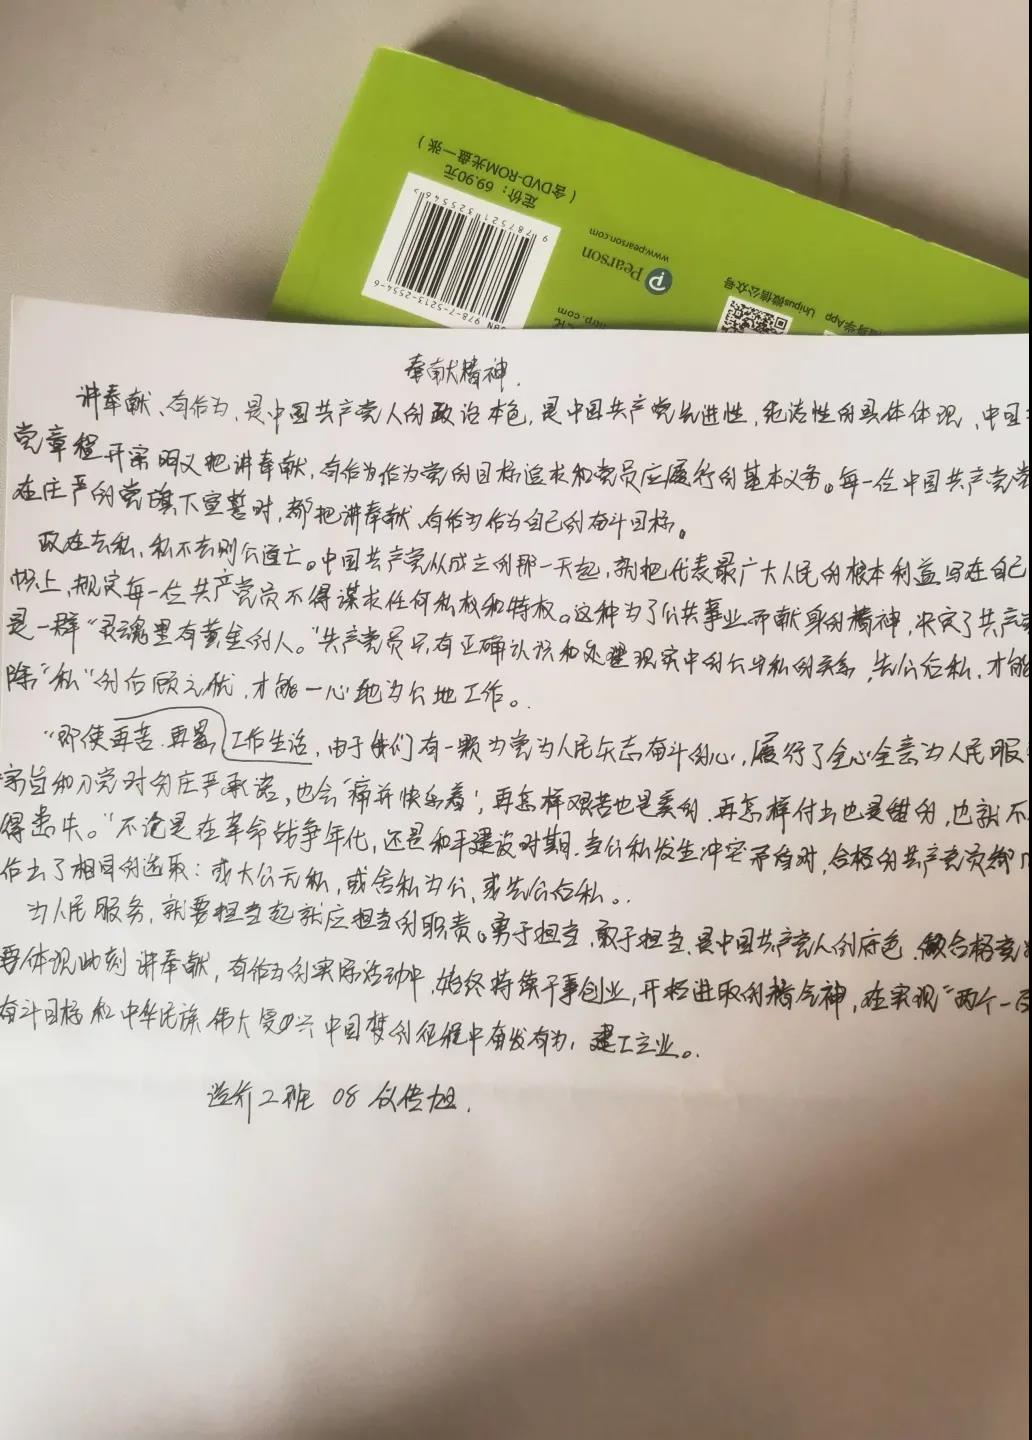 (含DVD-ROM光盘一张)
定价：69.90元
9 787521 325546 >
ISBN 978-7-5213-2554-6
Pearson
www.pearson.com
Unipus微信公众号
学App
奉献精神.
讲奉献、有作为、是中国共产党人的政治本色，是中国共产党先进性，纯洁性的具体体现，中国
党章程开宗明义把讲奉献，有作为作为党的目标追求和党员应履行的基本义务。每一位中国共产党党
在庄严的党旗下宣誓时，都把讲奉献、有作为作为自己的奋斗目标。
政在去私，私不去则公道亡。中国共产党从成立的那一天起，就把代表最广大人民的根本利益写在自己
帜上，规定每一位共产党员不得谋求任何私权和特权。这种为了公共事业而献身的精神，决定了共产党
是一群“灵魂里有黄金的人。”共产党员只有正确认识和处理现实中的公与私的关系，先公后私，才能
除“私”的后顾之忧，才能一心地为公地工作。
“即使再苦.再累工作生活，由于我们有一颗为党为人民矢志奋斗的心，履行了全心全意为人民服
宗旨和入党时的庄严承诺，也会‘痛并快乐着’，再怎样艰苦也是美的，再怎样付出也是甜的，也就不
得患失。”不论是在革命战争年代，还是和平建设时期，当公私发生冲突矛盾时，合格的共产党员都
作出了相同的选取：或大公无私，或舍私为公，或先公后私。
为人民服务，就要担当起就应担当的职责。勇于担当，敢于担当，是中国共产党人的底色.做合格党
要体现此刻讲奉献，有作为的实际活动中，始终持续干事创业，开拓进取的精气神，在实现“两个一百
奋斗目标和中华民族伟大复兴中国梦的征程中奋发有为，建工立业。
造价2班 08